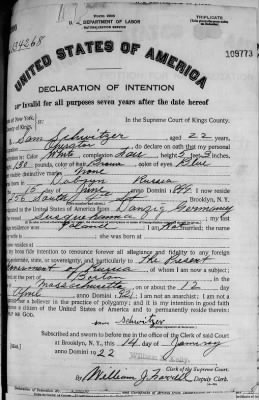 TRIPLICATE
U. S. DEPARTMENT OF LABOR
NATURALIZATION SERVICE
34268
109773
UNITED STATES OF AMERICA
DECLARATION OF INTENTION
Invalid for all purposes seven years after the date hereof
of New York,
of Kings,
In the Supreme Court of Kings County.
I, Sam Schwitzer aged 22 years,
Operator, do declare on oath that my personal
Color White, complexion Fair, height 5 feet 3 inches,
130 pounds, color of hair Brown color of eyes Blue
distinctive marks None
Dobryn Russia
15 day of June, anno Domini
256 South St Brooklyn, N. Y.
the United States of America from Danzig Germany
Susquehanna, my last
residence was Poland, I am not married; the name
she was born at
now resides at
my bona fide intention to renounce forever all allegiance and fidelity to any foreign
state, or sovereignty, and particularly to The Present
Government of Russia of whom I am now a subject;
at the port of Boston, in the
of Massachusetts on or about the 12 day
April, anno Domini 1921; I am not an anarchist; I am not a
nor a believer in the practice of polygamy; and it is my intention in good faith
a citizen of the United States of America and to permanently reside therein:
Sam Schwitzer
Subscribed and sworn to before me in the office of the Clerk of said Court
at Brooklyn, N. Y., this 14 day of January
anno Domini 1922
[SEAL]
William Kelly
Clerk of the Supreme Court.
By William J. Farrell Deputy Clerk.